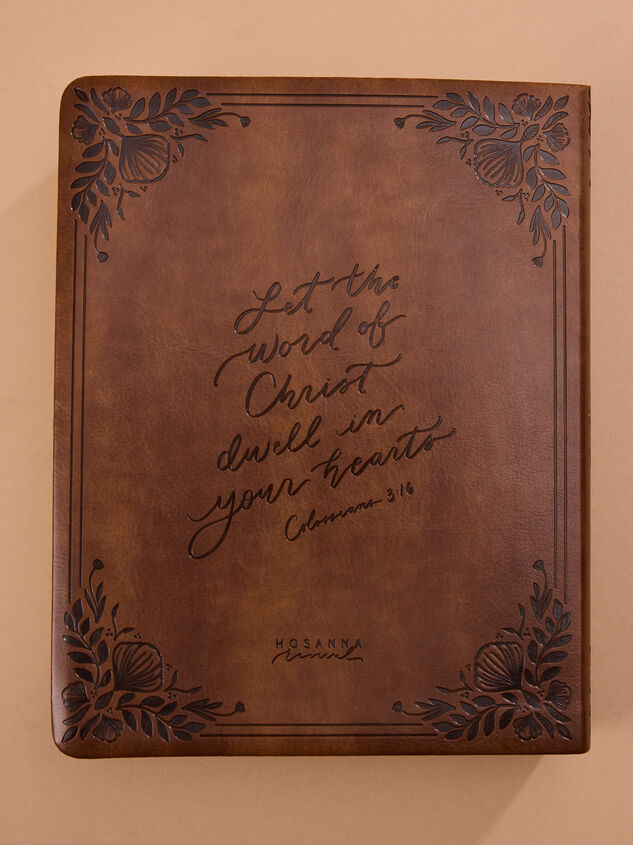 Let the
word of
Christ
dwell in
your hearts
Colossians 3:16
HOSANNA
revival